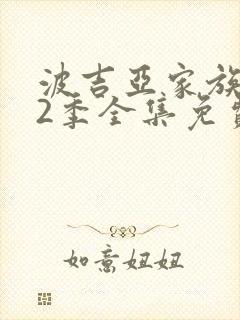 波吉亚家族
2季全集免
如意妞妞